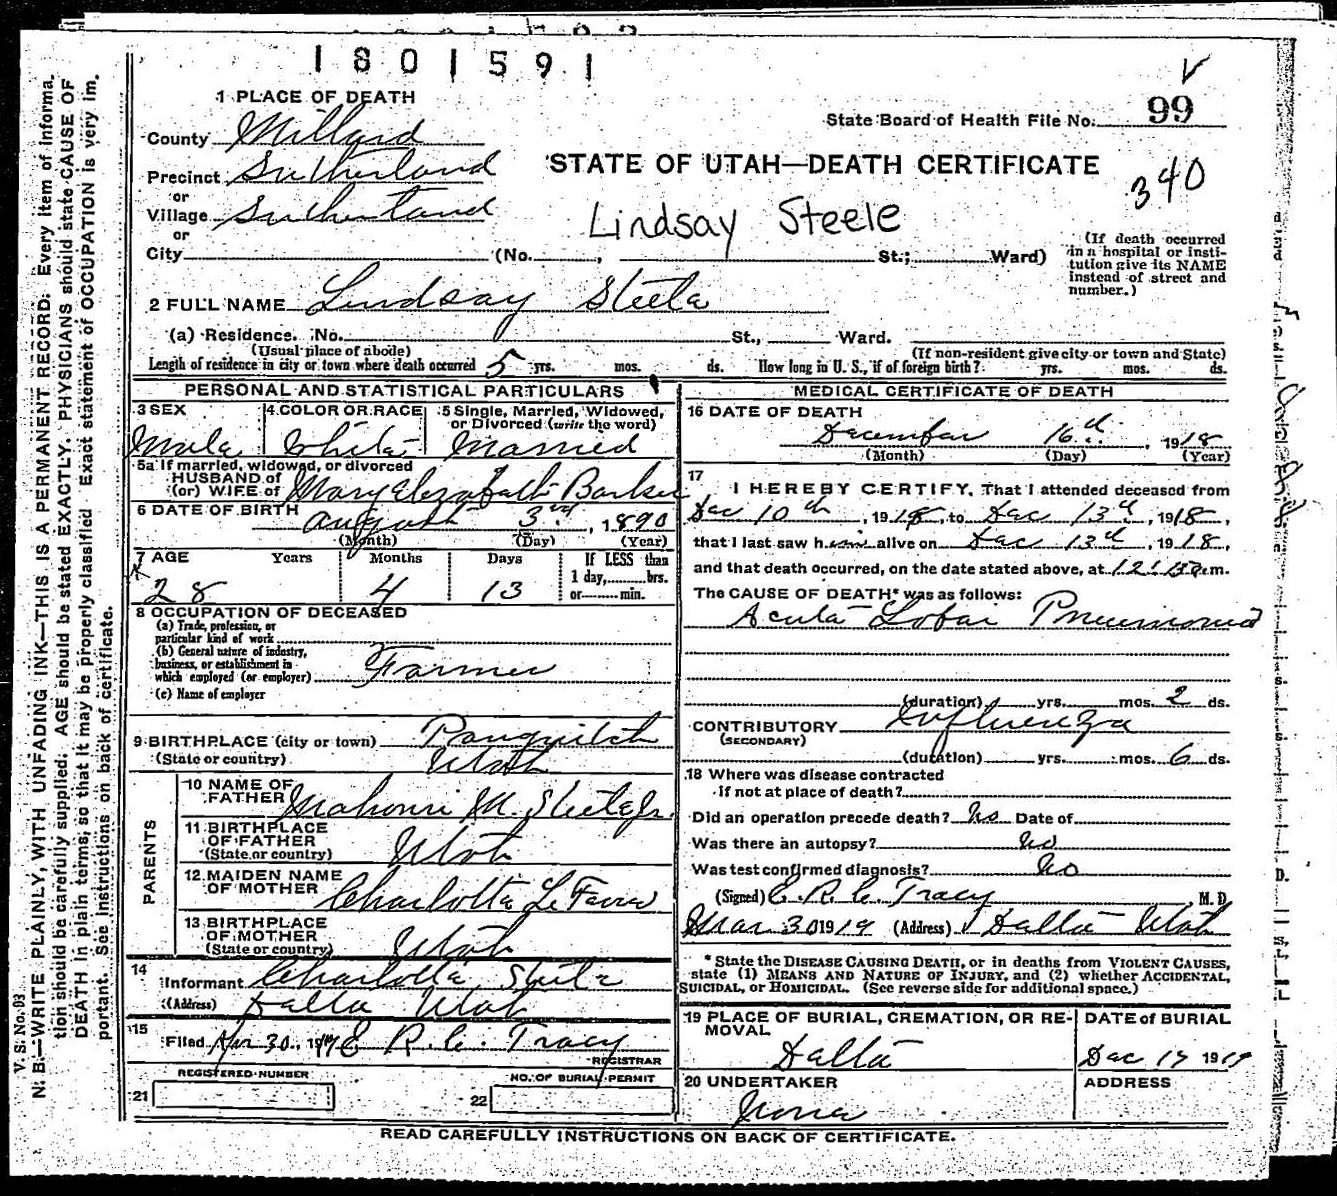 1801591
1 PLACE OF DEATH
State Board of Health File No. 99
County Millard
STATE OF UTAH—DEATH CERTIFICATE
340
Precinct Sutherland
or
Village Sutherland
Lindsay Steele
or
City (No. , St.; Ward)
(If death occurred
in a hospital or insti-
tution give its NAME
instead of street and
number.)
2 FULL NAME Lindsay Steele
(a) Residence. No. St., Ward.
(Usual place of abode) (If non-resident give city or town and State)
Length of residence in city or town where death occurred 5 yrs. mos. ds. How long in U. S., if of foreign birth? yrs. mos. ds.
PERSONAL AND STATISTICAL PARTICULARS
3 SEX 4 COLOR OR RACE 5 Single, Married, Widowed,
or Divorced (write the word)
Male White Married
5a If married, widowed, or divorced
HUSBAND of
(or) WIFE of Mary Elezabeth Barker
6 DATE OF BIRTH August 3rd, 1890
(Month) (Day) (Year)
7 AGE Years Months Days If LESS than
1 day, hrs.
or min.
28 4 13
8 OCCUPATION OF DECEASED
(a) Trade, profession, or
particular kind of work
(b) General nature of industry,
business, or establishment in
which employed (or employer) Farmer
(c) Name of employer
9 BIRTHPLACE (city or town) Panguitch
(State or country) Utah
PARENTS
10 NAME OF
FATHER Mahonri M. Steele Jr.
11 BIRTHPLACE
OF FATHER
(State or country) Utah
12 MAIDEN NAME
OF MOTHER Charlotte LeFevre
13 BIRTHPLACE
OF MOTHER
(State or country) Utah
14
Informant Charlotte Steele
(Address) Delta Utah
15
Filed 30, 19 E R. C. Tracy
REGISTRAR
REGISTERED NUMBER NO. OF BURIAL PERMIT
21 22
MEDICAL CERTIFICATE OF DEATH
16 DATE OF DEATH
December 16th, 1918
(Month) (Day) (Year)
17
I HEREBY CERTIFY, That I attended deceased from
Dec 10th, 1918, to Dec 13th, 1918,
that I last saw him alive on Dec 13th, 1918,
and that death occurred, on the date stated above, at m.
The CAUSE OF DEATH* was as follows:
Acute Lobar Pneumonia
(duration) yrs. mos. 2 ds.
CONTRIBUTORY Influenza
(SECONDARY)
(duration) yrs. mos. 6 ds.
18 Where was disease contracted
if not at place of death?
Did an operation precede death? No Date of
Was there an autopsy? No
Was test confirmed diagnosis? No
(Signed) E. R. C. Tracy M. D.
Mar 30 1919 (Address) Delta Utah
* State the DISEASE CAUSING DEATH, or in deaths from VIOLENT CAUSES,
state (1) MEANS AND NATURE OF INJURY, and (2) whether ACCIDENTAL,
SUICIDAL, or HOMICIDAL. (See reverse side for additional space.)
19 PLACE OF BURIAL, CREMATION, OR RE-
MOVAL
Delta
DATE of BURIAL
Dec 17 1919
20 UNDERTAKER
None
ADDRESS
READ CAREFULLY INSTRUCTIONS ON BACK OF CERTIFICATE.
V. S. No. D3
N. B.—WRITE PLAINLY, WITH UNFADING INK—THIS IS A PERMANENT RECORD. Every item of informa-
tion should be carefully supplied. AGE should be stated EXACTLY. PHYSICIANS should state CAUSE OF
DEATH in plain terms, so that it may be properly classified. Exact statement of OCCUPATION is very im-
portant. See instructions on back of certificate.